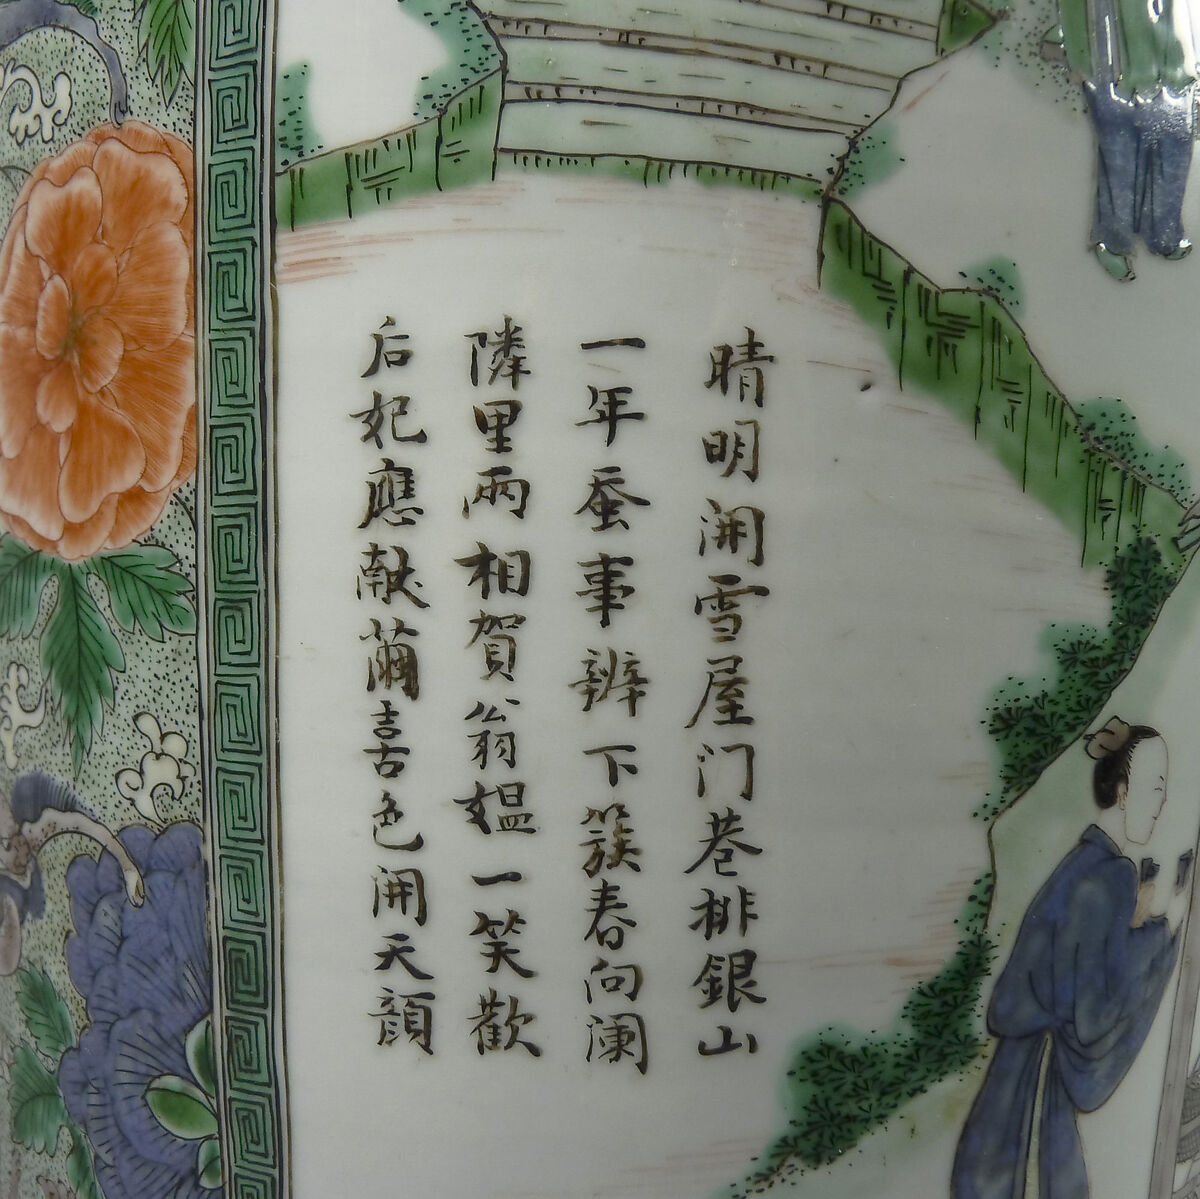 晴明開雪屋门巷排銀山
一年蚕事辨下簇春向阑
隣里兩相賀翁媪一笑歡
后妃應献繭喜色開天顔